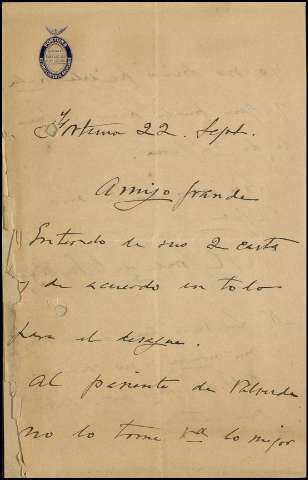 Fortuna 22. Sept.
Amigo grande
Enterado de sus 2 carta
y de acuerdo en todo
para el desagüe.
Al pariente de Valverde
no lo tome Vd lo mejor